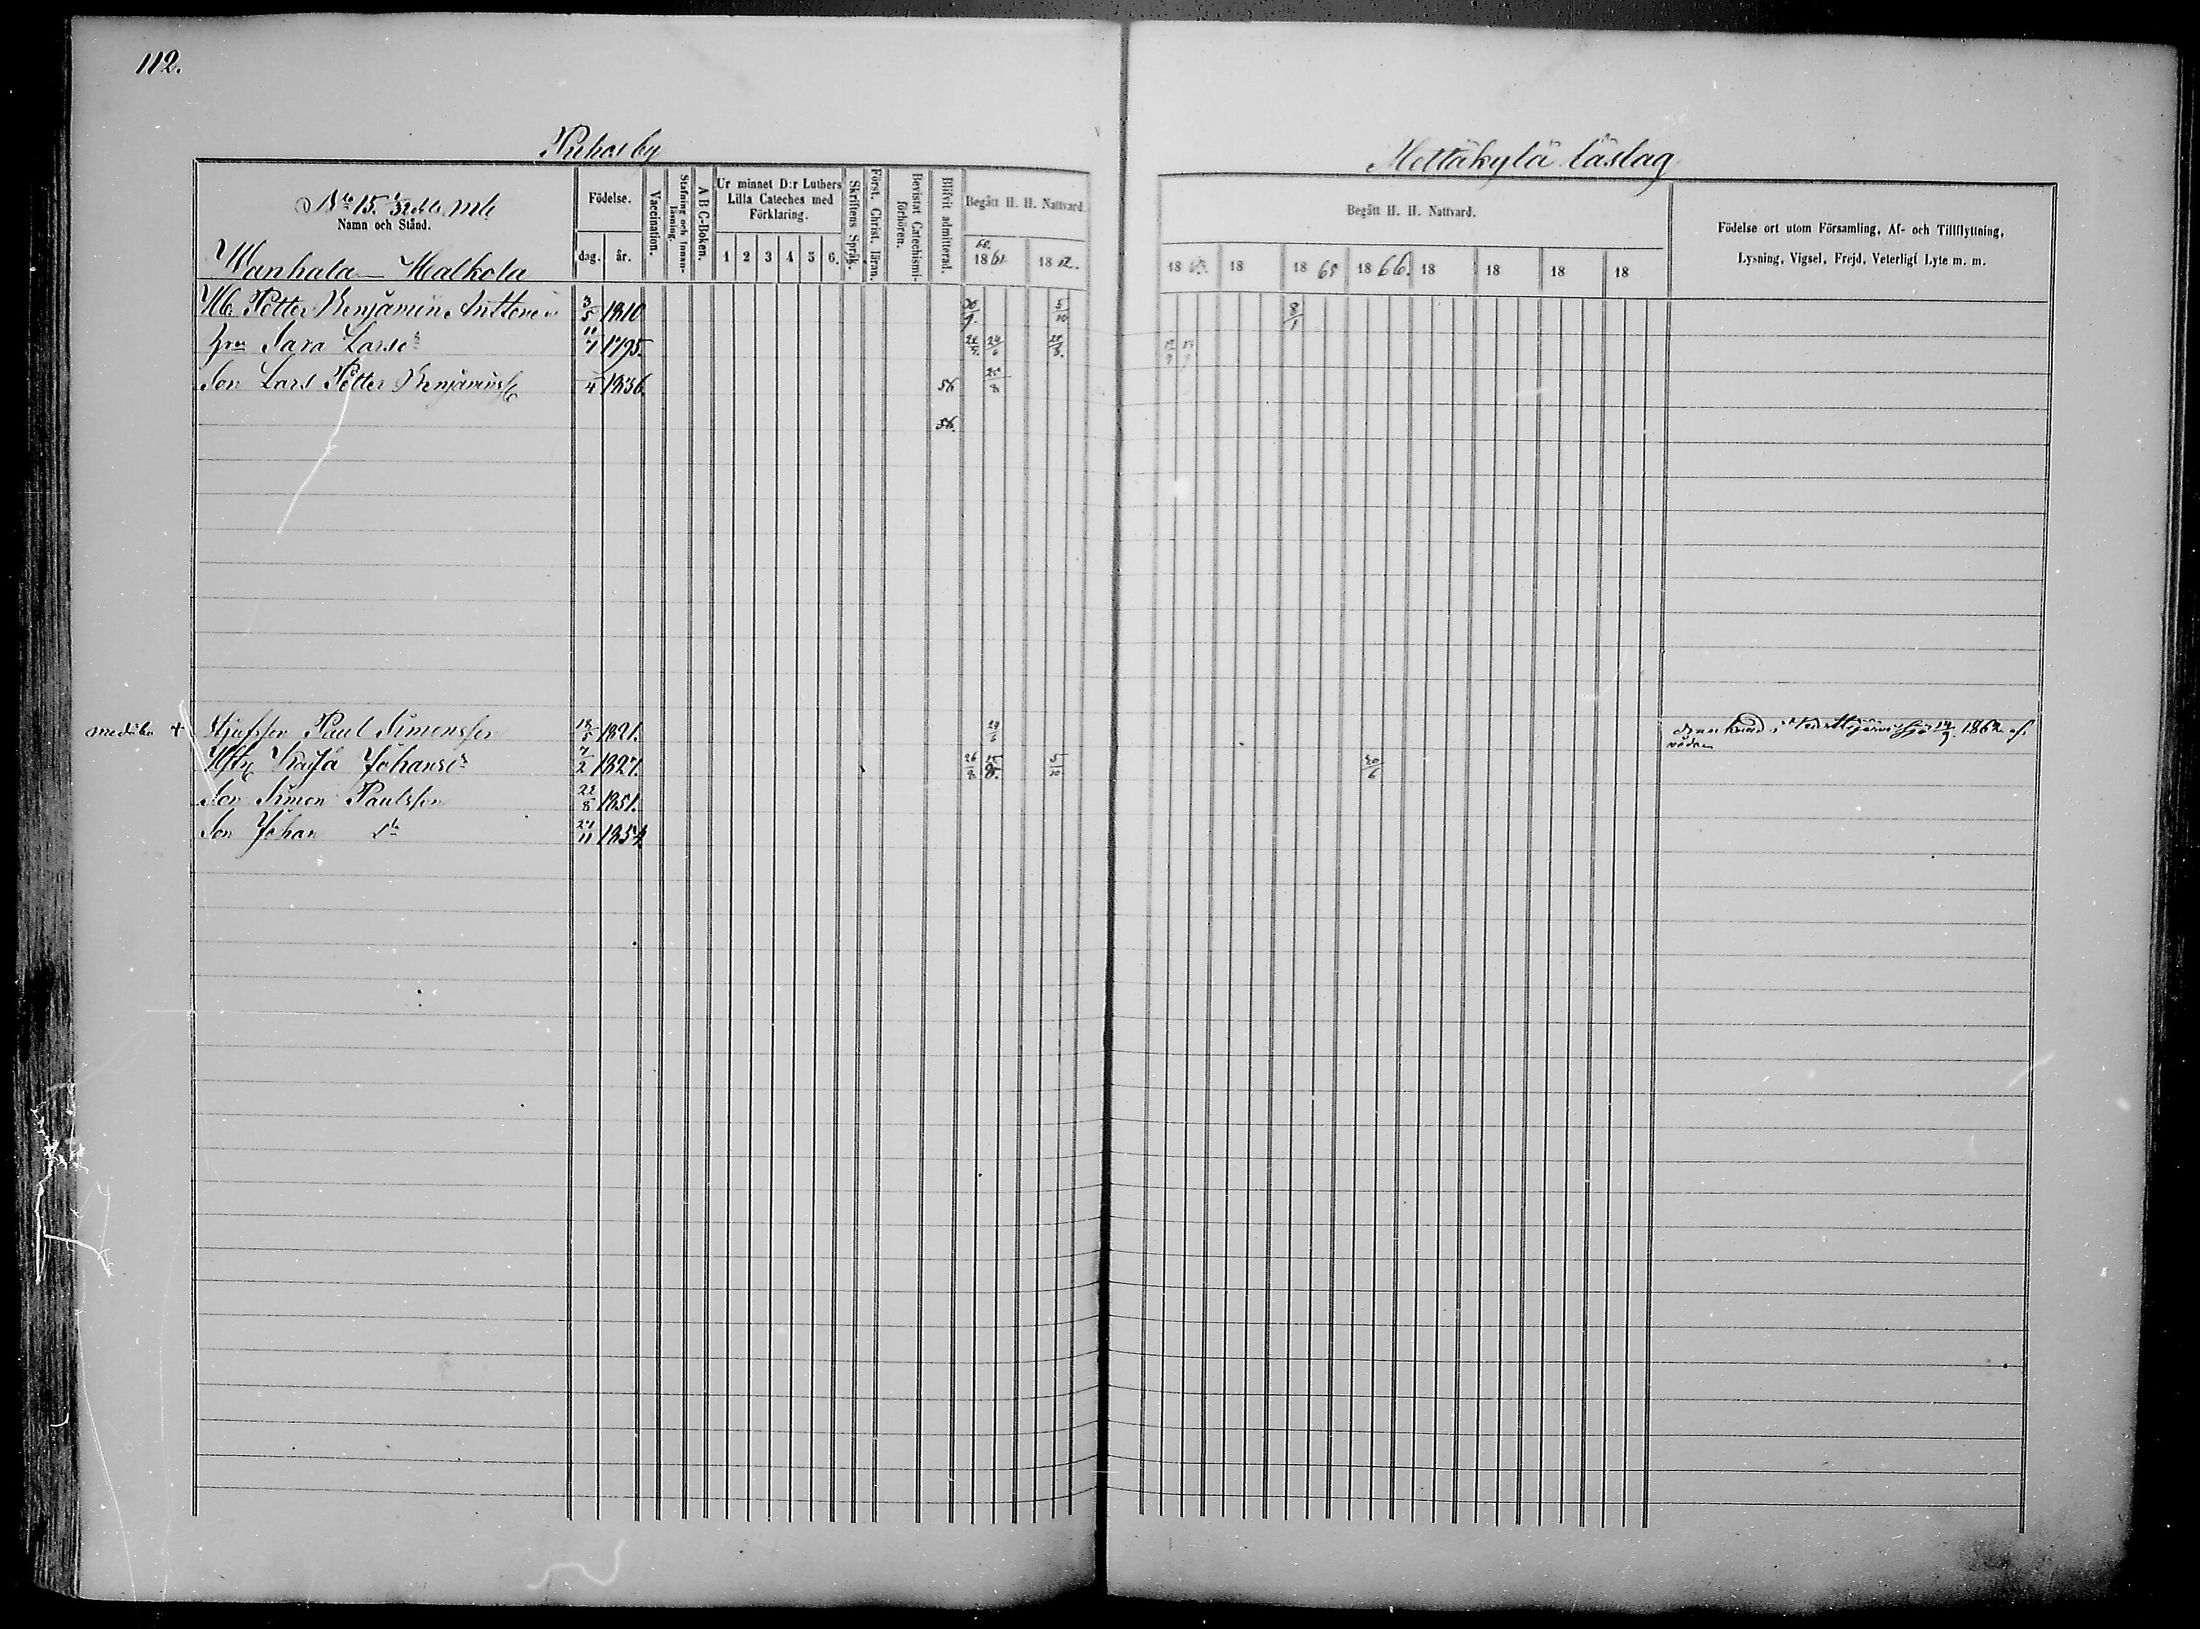 112.
Puhos by
Mettäkylä läslag
No 15. 1/32 dels mtl
Namn och Stånd.
Wanhala — Malkola
Födelse.
dag. år.
Vaccination.
Stafning och Innanläsning.
A B C-Boken.
Ur minnet D:r Luthers Lilla Cateches med Förklaring.
1 2 3 4 5 6.
Skriftens Språk.
Först. Christ. läran.
Bevistat Catechismiförhören.
Blifvit admitterad.
Begått H. H. Nattvard.
60.
1861. 1862.
Begått H. H. Nattvard.
18 18 1865 1866. 18 18 18 18
Födelse ort utom Församling, Af- och Tillflyttning,
Lysning, Vigsel, Frejd, Veterligt Lyte m. m.
Petter Benjamin Anttonen 3/5 1810 30/9. 5/10 8/1
hru Sara Larsdr 11/7 1795.
Son Lars Petter Benjaminss /4 1836. 56
56.
+ Styfson Paul Simonsson 18/5 1821. i 1862
Kajsa Johansdr 7/2 1827. 5/10 30/6
Son Simon Paulsson 22/8 1851.
Son Johan do 27/11 1854